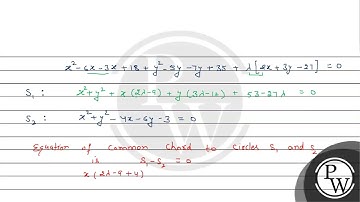 x² - 6x - 3x + 18 + y² - 5y - 7y + 35 + λ[2x + 3y - 27] = 0
S₁ : x² + y² + x(2λ-9) + y(3λ-12) + 53 - 27λ = 0
S₂ : x² + y² - 4x - 6y - 3 = 0
Equation of Common Chord to Circles S₁ and S₂
is S₁ - S₂ = 0
x(2λ-9+4)
P
W
PW